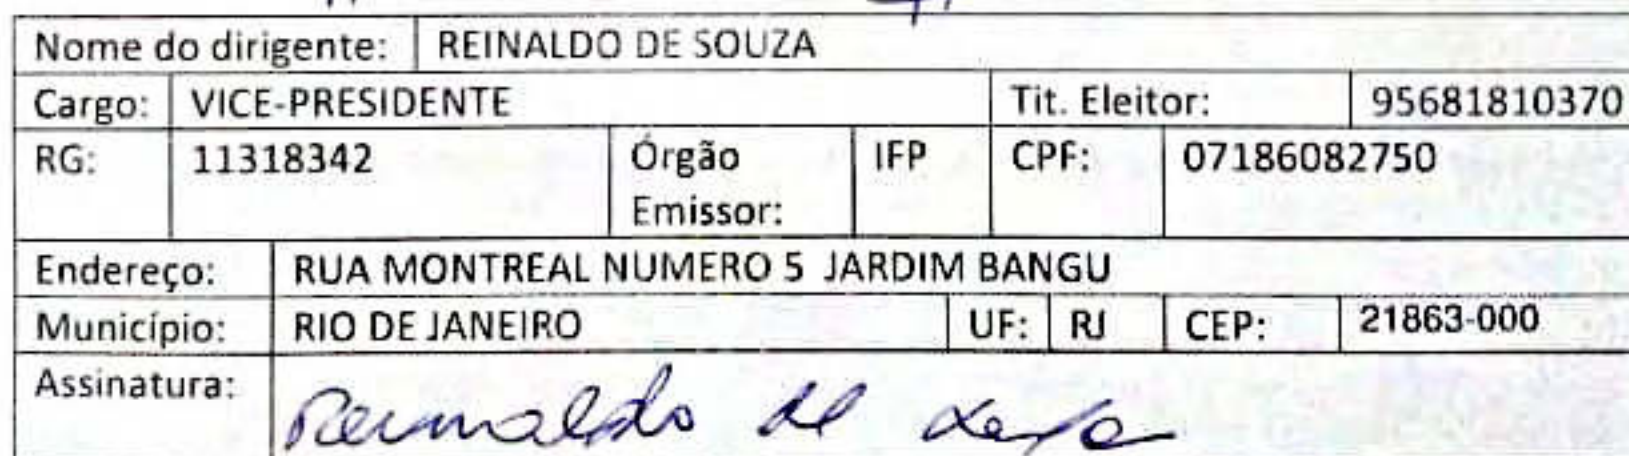 Nome do dirigente: REINALDO DE SOUZA
Cargo: VICE-PRESIDENTE Tit. Eleitor: 95681810370
RG: 11318342 Órgão Emissor: IFP CPF: 07186082750
Endereço: RUA MONTREAL NUMERO 5 JARDIM BANGU
Município: RIO DE JANEIRO UF: RJ CEP: 21863-000
Assinatura: Reinaldo de